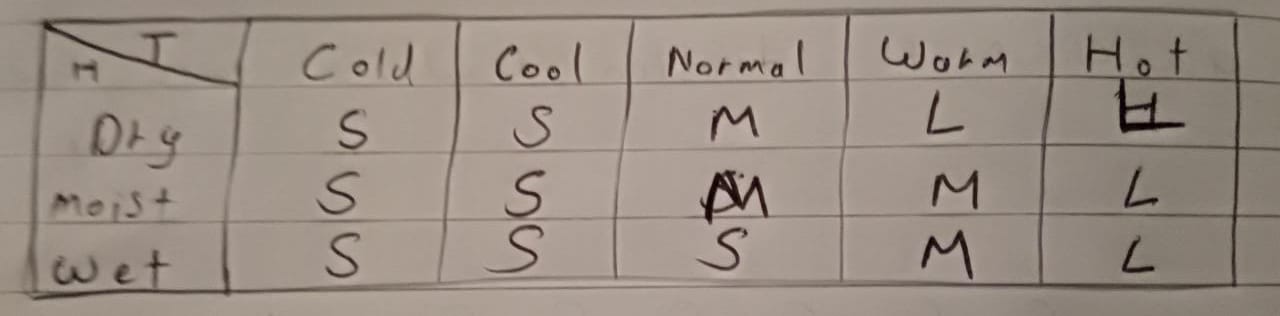 H T Cold Cool Normal Warm Hot
Dry S S M L L
Moist S S M M L
Wet S S S M L